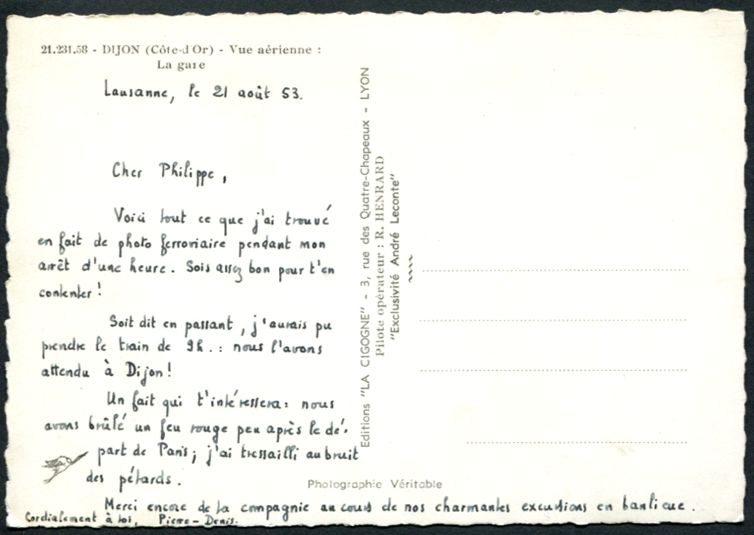 21.231.58 - DIJON (Côte-d'Or) - Vue aérienne :
La gare
Lausanne, le 21 août 53.
Cher Philippe,
Voici tout ce que j'ai trouvé
en fait de photo ferroviaire pendant mon
arrêt d'une heure. Sois assez bon pour t'en
contenter !
Soit dit en passant, j'aurais pu
prendre le train de 9h. : nous l'avons
attendu à Dijon !
Un fait qui t'intéressera : nous
avons brûlé un feu rouge peu après le dé-
part de Paris ; j'ai tressailli au bruit
des pétards.
Merci encore de ta compagnie au cours de nos charmantes excursions en banlieue.
Cordialement à toi, Pierre-Denis.
Editions "LA CIGOGNE" - 3, rue des Quatre-Chapeaux - LYON
Pilote opérateur : R. HENRARD
"Exclusivité André Leconte"
Photographie Véritable